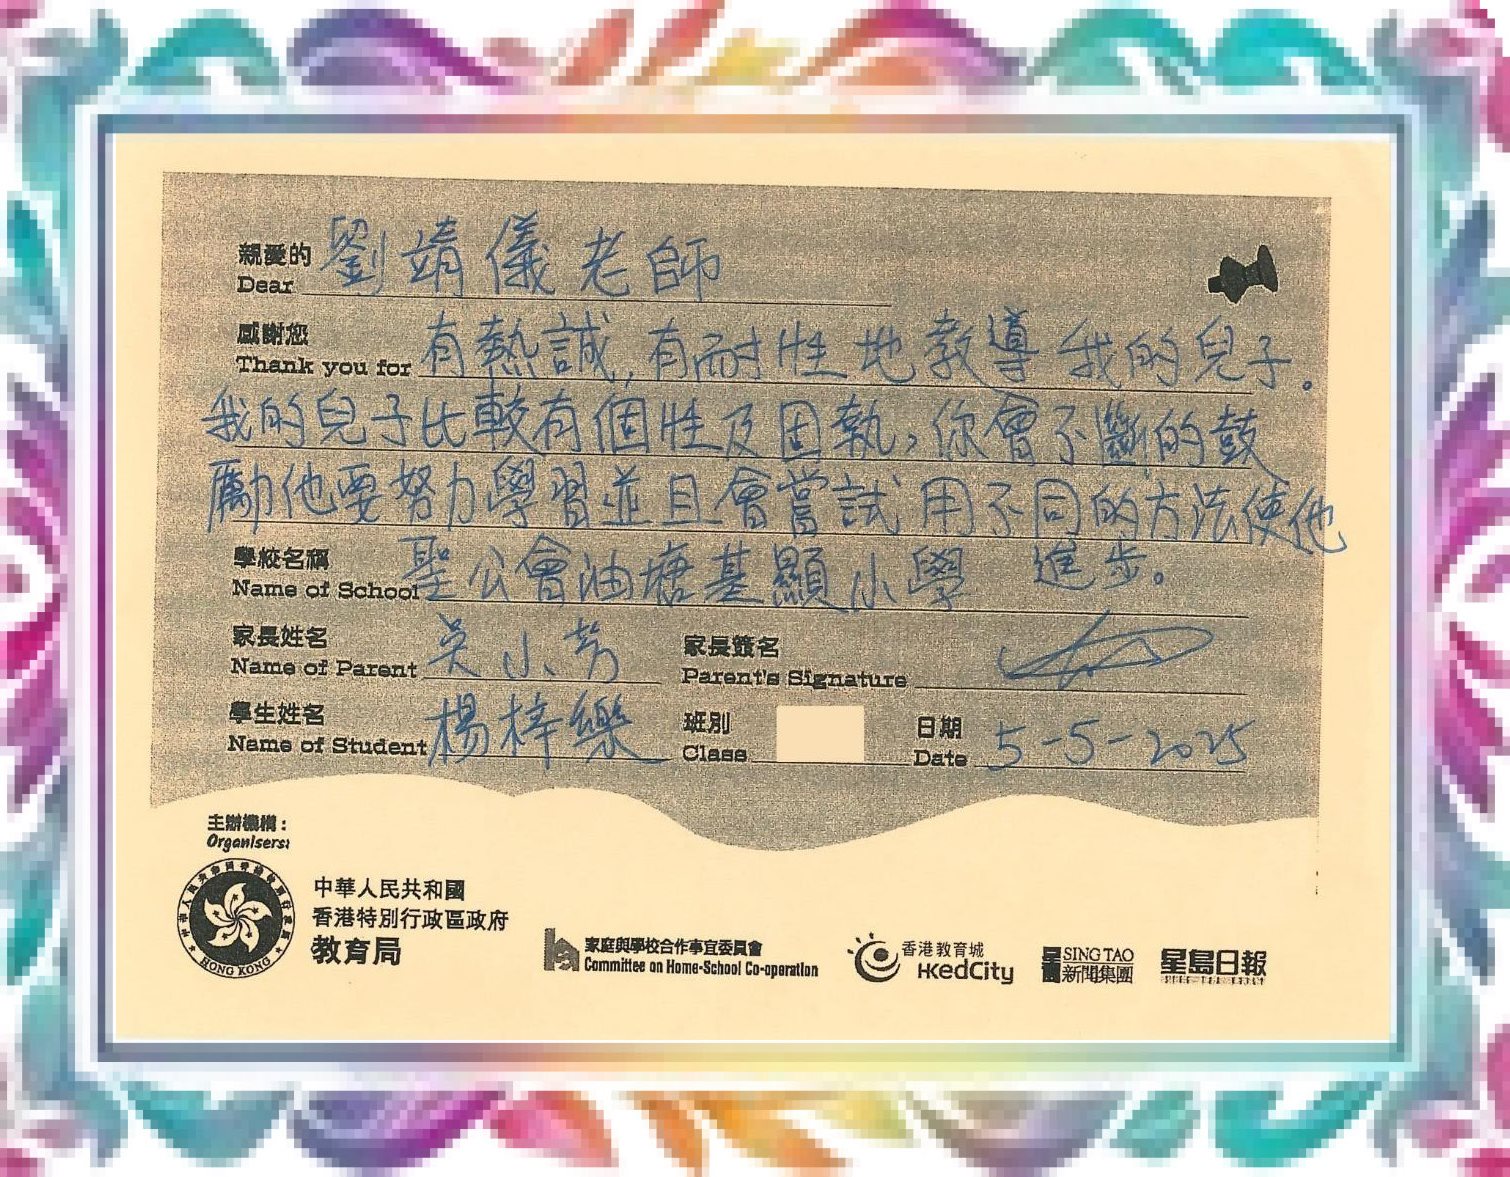 親愛的 劉靖儀老師
Dear
感謝您 有熱誠,有耐性地教導我的兒子。
Thank you for
我的兒子比較有個性及固執,你會不斷的鼓
勵他要努力學習並且會嘗試用不同的方法使他
進步。
學校名稱 聖公會油塘基顯小學
Name of School
家長姓名 吳小芳 家長簽名
Name of Parent Parent's Signature
學生姓名 楊梓樂 班別 日期 5-5-2025
Name of Student Class Date
主辦機構:
Organisers:
HONG KONG
中華人民共和國
香港特別行政區政府
教育局
家庭與學校合作事宜委員會
Committee on Home-School Co-operation
香港教育城
HKedCity
SING TAO
新聞集團
星島日報